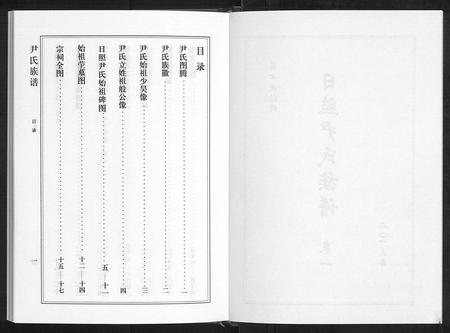 目录
尹氏图腾……一
尹氏族徽……二
尹氏始祖少昊像……三
尹氏立姓祖般公像……四
日照尹氏始祖碑图……五—十一
始祖茔墓图……十二—十四
宗祠全图……十五—十七
尹氏族谱
目录
一
日照尹氏族谱
卷一